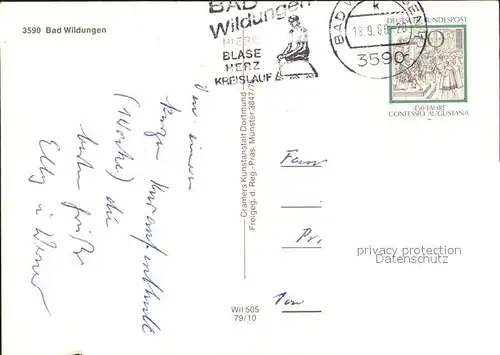 3590 Bad Wildungen
BAD
Wildungen
NIERE
BLASE
HERZ
KREISLAUF
BAD W
k
18.9.80-20
3590
DEUTSCHE BUNDESPOST
50
450 JAHRE
CONFESSIO AUGUSTANA
Von einem
kurzen Kuraufenthalt
(1 Woche) die
besten Grüße
Elly u. Werner
Cramers Kunstanstalt Dortmund
Freigeg. d. Reg.-Präs. Münster 3847/7
Wil 505
79/10
Fam
Pr.
privacy protection
Datenschutz